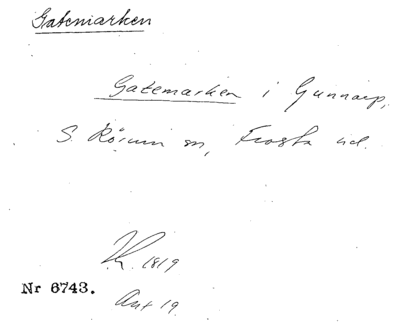 Gatemarken
Gatemarken i Gunnarp,
S. Rörum sn, Frosta hd.
1819
Nr 6743.
Akt 19.